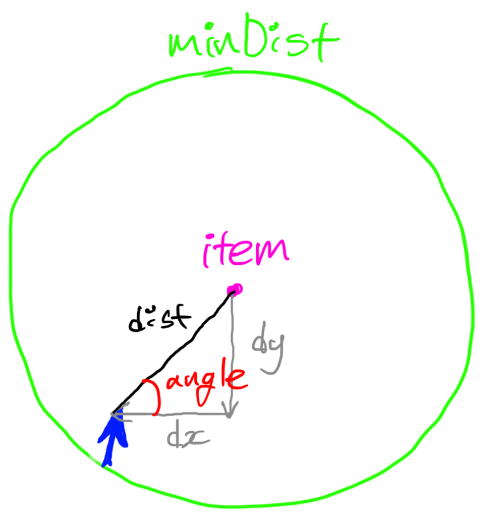 minDist
item
dist
dy
angle
dx